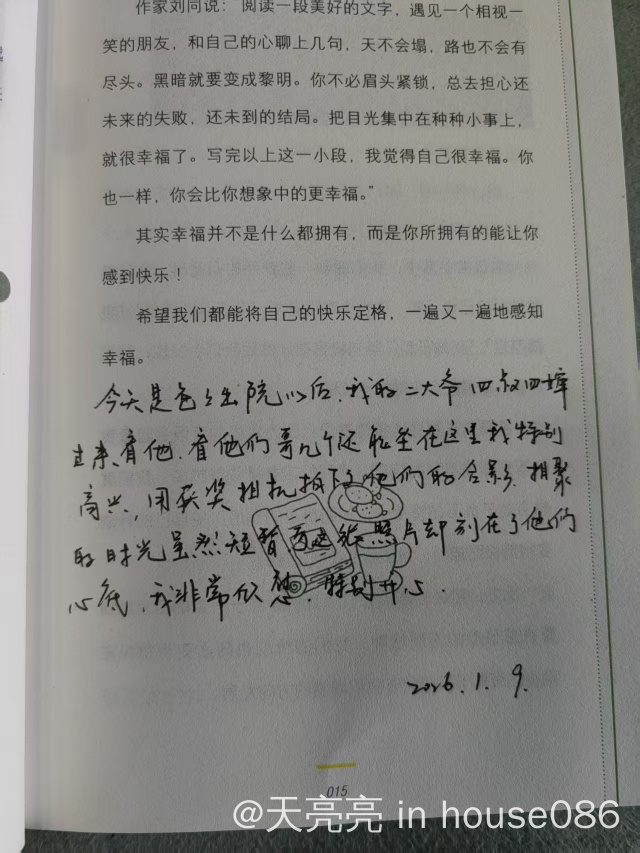 作家刘同说：“阅读一段美好的文字，遇见一个相视一
笑的朋友，和自己的心聊上几句，天不会塌，路也不会有
尽头。黑暗就要变成黎明。你不必眉头紧锁，总去担心还
未来的失败，还未到的结局。把目光集中在种种小事上，
就很幸福了。写完以上这一小段，我觉得自己很幸福。你
也一样，你会比你想象中的更幸福。”
其实幸福并不是什么都拥有，而是你所拥有的能让你
感到快乐！
希望我们都能将自己的快乐定格，一遍又一遍地感知
幸福。
今天是爸爸出院以后，我的二大爷四叔四婶
过来看他，看他们哥几个还能坐在这里我特别
高兴，用获奖相机拍下了他们的合影，相聚
的时光虽然短暂，照片却刻在了他们
心底，我非常欣慰，特别开心。
2026.1.9.
015
@天亮亮 in house086